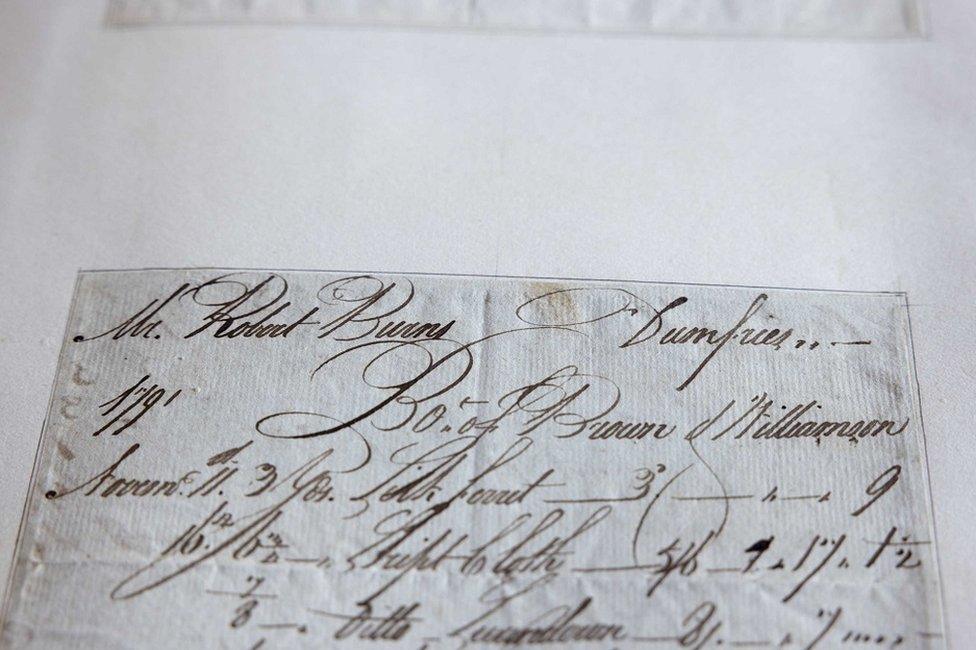 Mr. Robert Burns Dumfries
1791 Bo.t of Brown & Williamson
Novem.r 11. 3 Yds. Silk ferret — 3 — " — " 9
16. 6 — Stript Cloth — 5/6 1 " 17 " 1½
7/8 — Ditto — 8/. — " 7